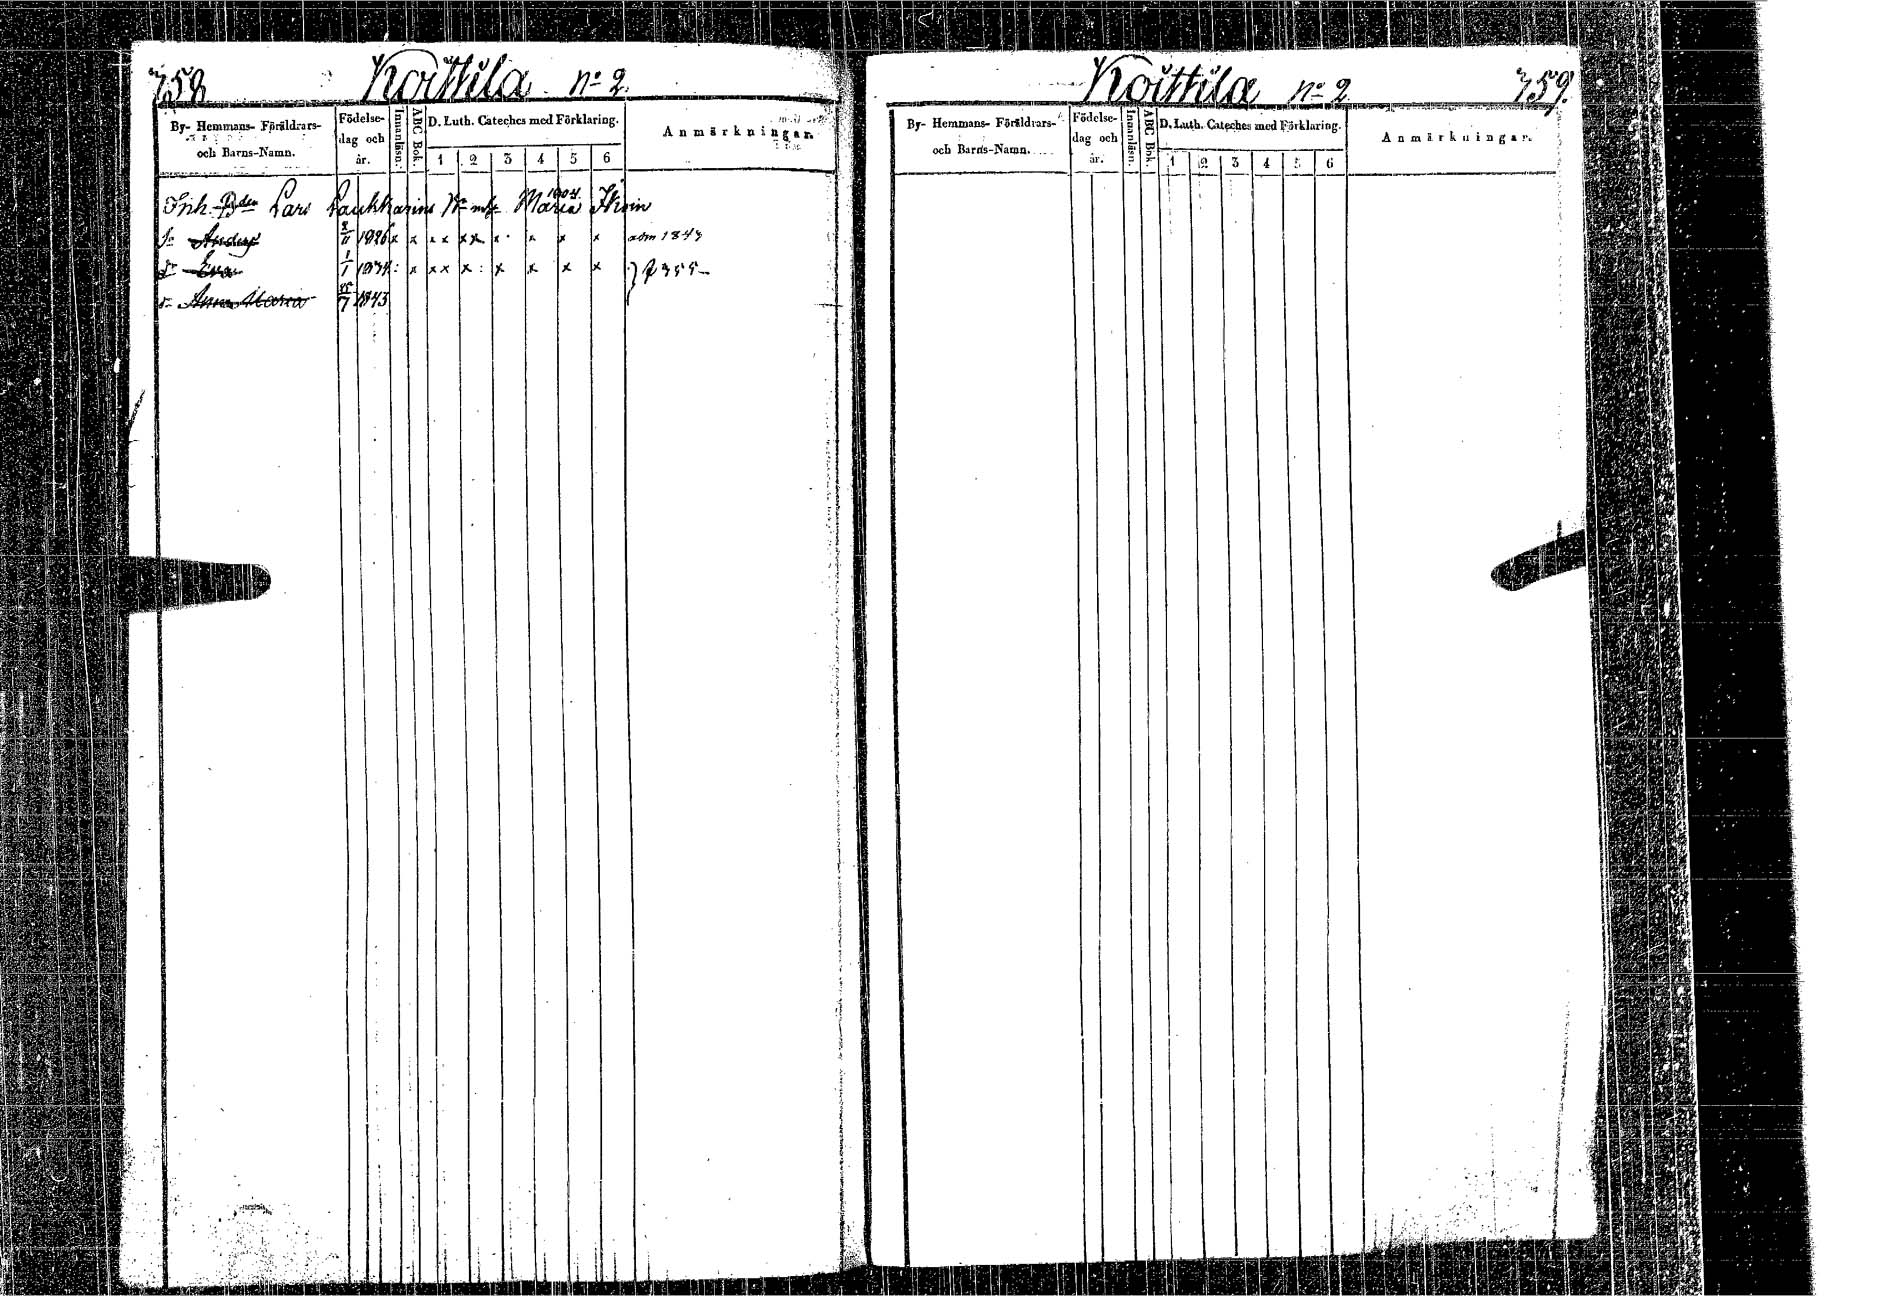 758
Koittila no 2.
By- Hemmans- Föräldrars-
och Barns-Namn.
Födelse-
dag och
år.
Innanläsn.
ABC Bok.
D. Luth. Cateches med Förklaring.
1 2 3 4 5 6
Anmärkningar.
Inh. Bden Lars Laukkarins Maria Ikoin
1804
s. Anders 2/11 1826 x x x x x x x x x x adm 1843
d. Eva 1/1 1834 : x x x x : x x x x } p 355
d. Anna Maria 25/7 1843
Koittila no 2
759.
By- Hemmans- Föräldrars-
och Barns-Namn.
Födelse-
dag och
år.
Innanläsn.
ABC Bok.
D. Luth. Cateches med Förklaring.
1 2 3 4 5 6
Anmärkningar.